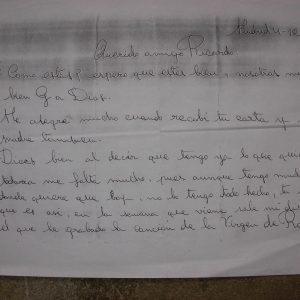 Madrid 4-12
Querido amigo Ricardo.
¿Como estás? espero que estes bien, nosotras m
bien G a Dios.
Me alegré mucho cuando recibí tu carta y
madre tambien.
Dices bien al decir que tengo ya lo que qui
todavia me falta mucho, pues aunque tengo much
que hoy, no lo tengo todo hecho, te
que es asi, en la semana que viene sale mi
el que he grabado la canción de la Virgen de Ro